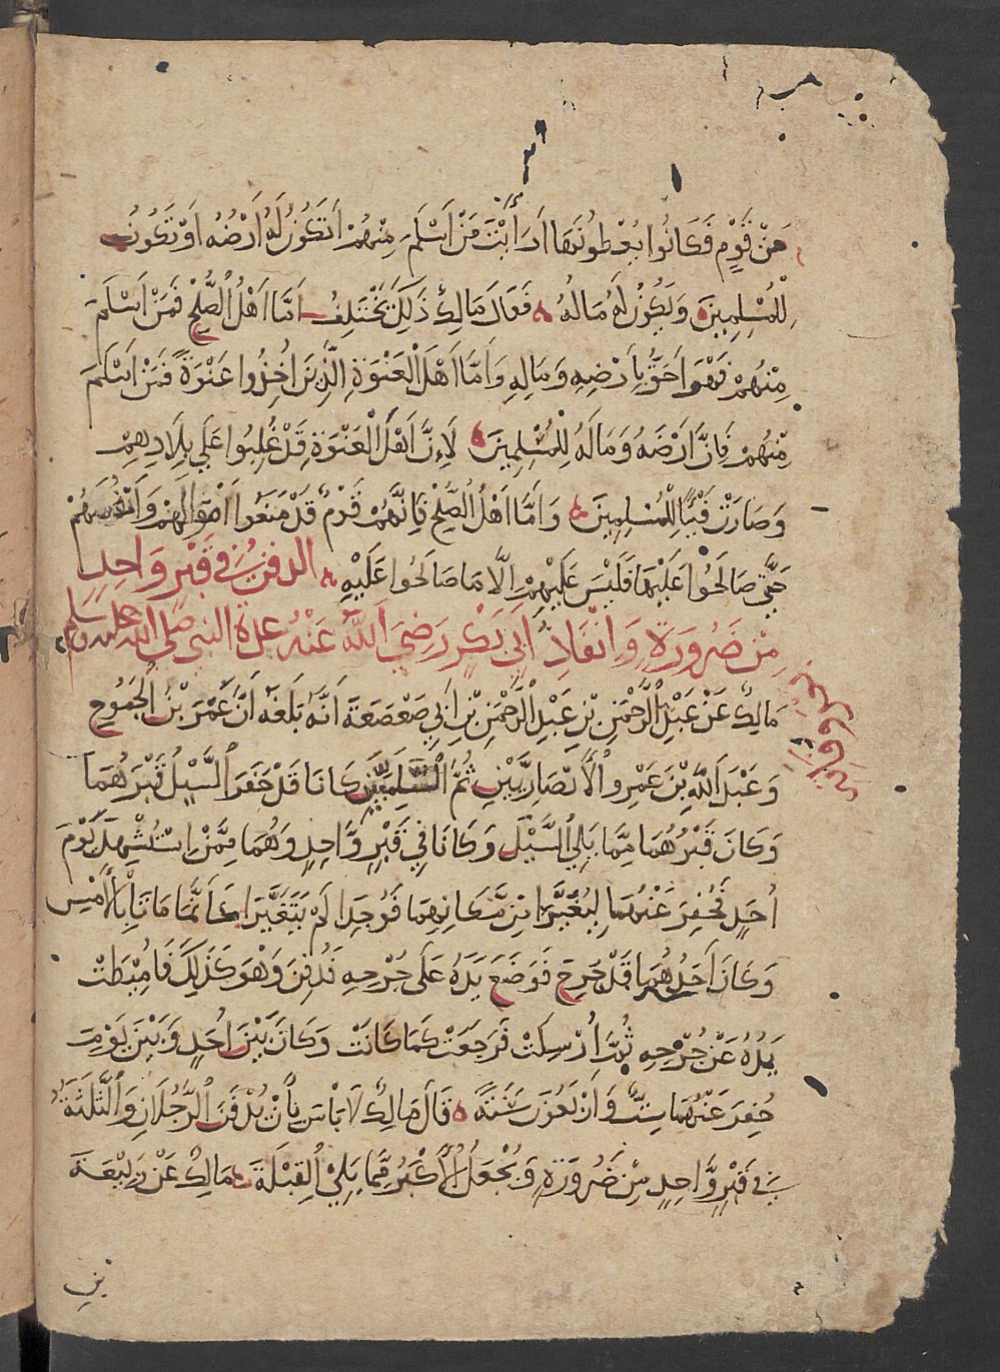 مِنْ قَوْمٍ فَكَانُوا يُعْطُونَهَا اَرَأَيْتَ مَنْ اَسْلَمَ مِنْهُمْ اَتَكُونُ لَهُ اَرْضُهُ اَوْ تَكُونُ
لِلْمُسْلِمِينَ وَيَكُونُ لَهُ مَالُهُ فَقَالَ مَالِكٌ ذَلِكَ يَخْتَلِفُ اَمَّا اَهْلُ الصُّلْحِ فَمَنْ اَسْلَمَ
مِنْهُمْ فَهْوَ اَحَقُّ بِاَرْضِهِ وَمَالِهِ وَاَمَّا اَهْلُ الْعَنْوَةِ الَّذِينَ اُخِذُوا عَنْوَةً فَمَنْ اَسْلَمَ
مِنْهُمْ فَاِنَّ اَرْضَهُ وَمَالَهُ لِلْمُسْلِمِينَ لَاِنَّ اَهْلَ الْعَنْوَةِ قَدْ غُلِبُوا عَلَي بِلَادِهِمْ
وَصَارَتْ فَيْئًا لِلْمُسْلِمِينَ وَاَمَّا اَهْلُ الصُّلْحِ فَاِنَّهُمْ قَوْمٌ قَدْ مَنَعُوا اَمْوَالَهُمْ وَاَنْفُسَهُمْ
حَتَّي صَالَحُوا عَلَيْهَا فَلَيْسَ عَلَيْهِمْ اِلَّا مَا صَالَحُوا عَلَيْهِ الدفن في قَبْرٍ وَاحِدٍ
مِنْ ضَرُورَةٍ وَاِنْفَاذُ اَبِي بَكْرٍ رَضِيَ اللَّهُ عَنْهُ عدة النبي صلي الله عليه وسلم
مَالِكٌ عَنْ عَبْدِ الرَّحْمَنِ بْنِ عَبْدِ الرَّحْمَنِ بْنِ اَبِي صَعْصَعَةَ اَنَّهُ بَلَغَهُ اَنَّ عَمْرَو بْنَ الْجَمُوحِ
وَعَبْدَ اللَّهِ بْنَ عَمْرٍو الْاَنْصَارِيَّيْنِ ثُمَّ السَّلَمِيَّيْنِ كَانَا قَدْ حَفَرَ السَّيْلُ قَبْرَهُمَا
وَكَانَ قَبْرُهُمَا مِمَّا يَلِي السَّيْلَ وَكَانَا فِي قَبْرٍ وَّاحِدٍ وَهُمَا مِمَّنْ اسْتُشْهِدَ يَوْمَ
اُحُدٍ فَحُفِرَ عَنْهُمَا لِيُغَيَّرَا مِنْ مَّكَانِهِمَا فَوُجِدَا لَمْ يَتَغَيَّرَا كَاَنَّمَا مَاتَا بِالْاَمْسِ
وَكَانَ اَحَدُهُمَا قَدْ جُرِحَ فَوَضَعَ يَدَهُ عَلَي جُرْحِهِ فَدُفِنَ وَهْوَ كَذَلِكَ فَاُمِيطَتْ
يَدُهُ عَنْ جُرْحِهِ ثُمَّ اُرْسِلَتْ فَرَجَعَتْ كَمَا كَانَتْ وَكَانَ بَيْنَ اُحُدٍ وَبَيْنَ يَوْمِ
حُفِرَ عَنْهُمَا سِتٌّ وَاَرْبَعُونَ سَنَةً قَالَ مَالِكٌ لَا بَاْسَ بِاَنْ يُدْفَنَ الرَّجُلَانِ وَالثَّلَثَةُ
فِي قَبْرٍ وَّاحِدٍ مِنْ ضَرُورَةٍ وَيُجْعَلُ الْاَكْبَرُ مِمَّا يَلِيْ الْقِبْلَةَ مَالِكٌ عَنْ رَبِيْعَةَ
بن